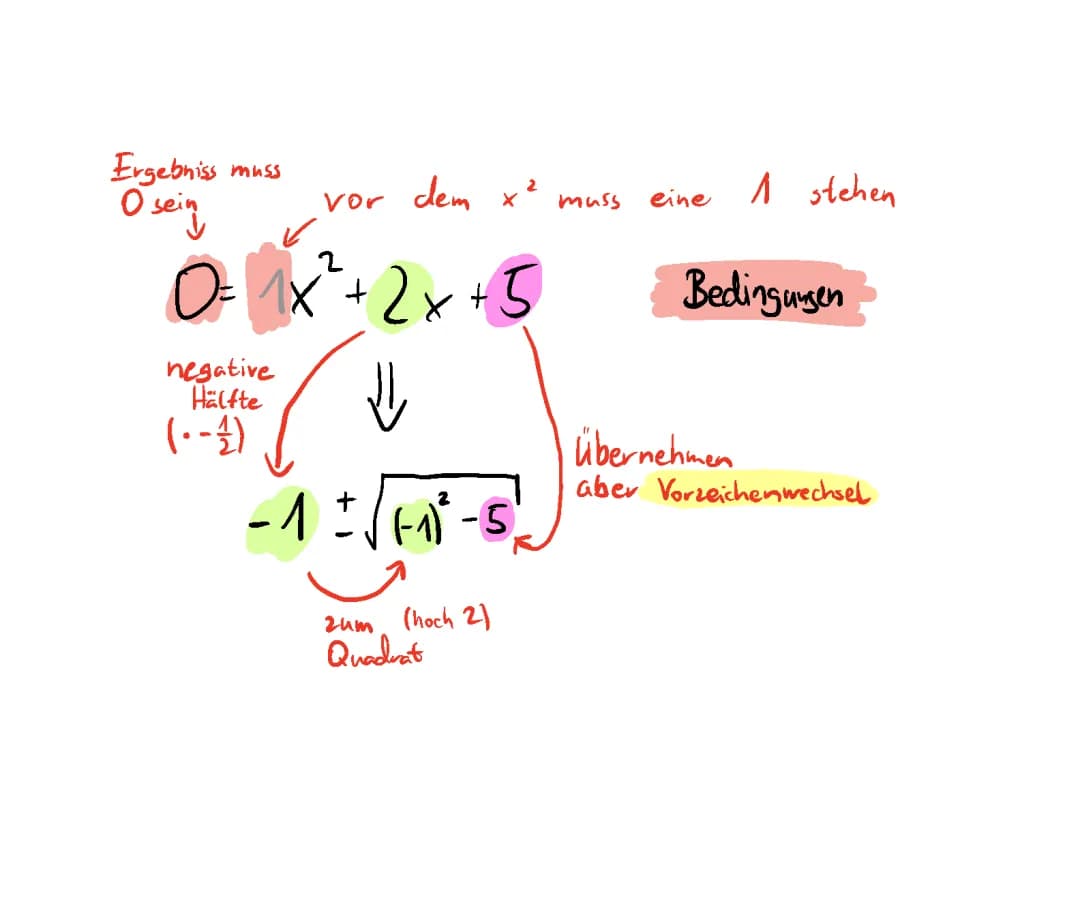 Ergebniss muss
0 sein
vor dem x² muss eine 1 stehen
0 = 1x² + 2x + 5
Bedingungen
negative
Hälfte
(· - 1/2)
Übernehmen
aber Vorzeichenwechsel
-1 ± √((-1)² - 5)
zum (hoch 2)
Quadrat